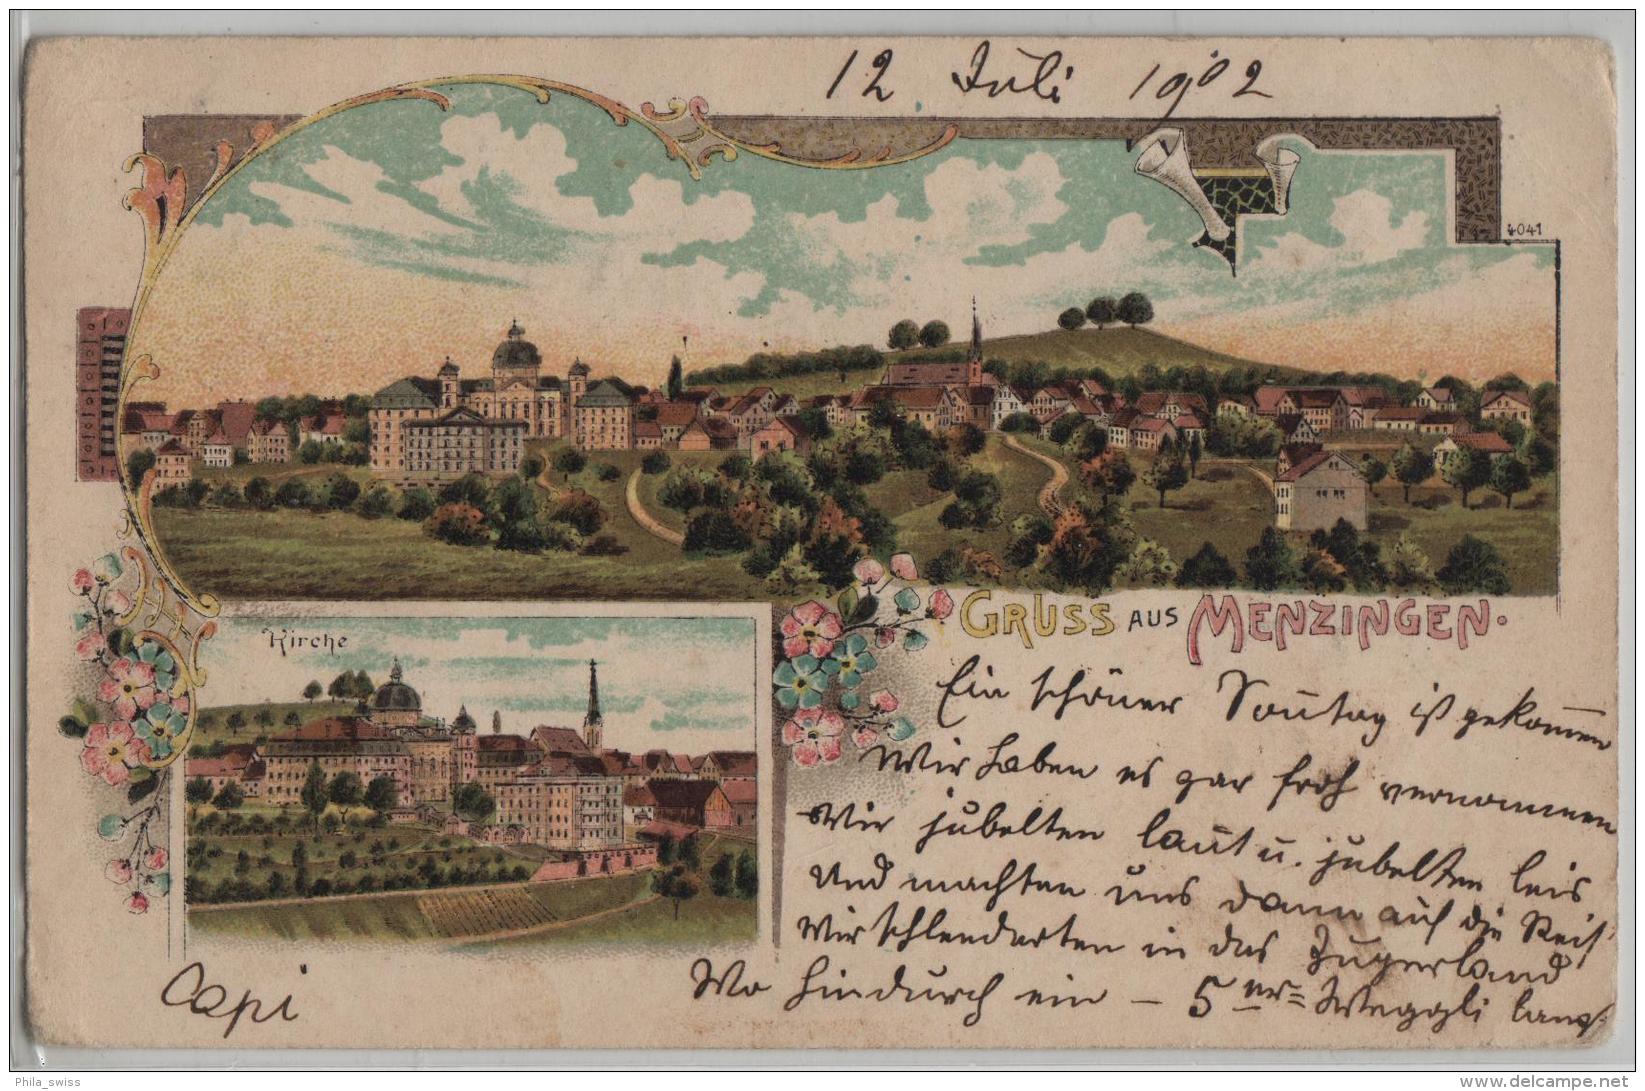 12 Juli 1902
4041
Kirche
GRUSS AUS MENZINGEN.
Ein schöner Sontag ist gekom̅en
Wir haben es gar froh vernommen
Wir jubelten laut u. jubelten leis
Und machten uns dann auf die Reis'
Wir schlenderten in das Zugerland
Wo hindurch ein – 5er= Weggli lang
Capi
Phila_swiss
www.delcampe.net